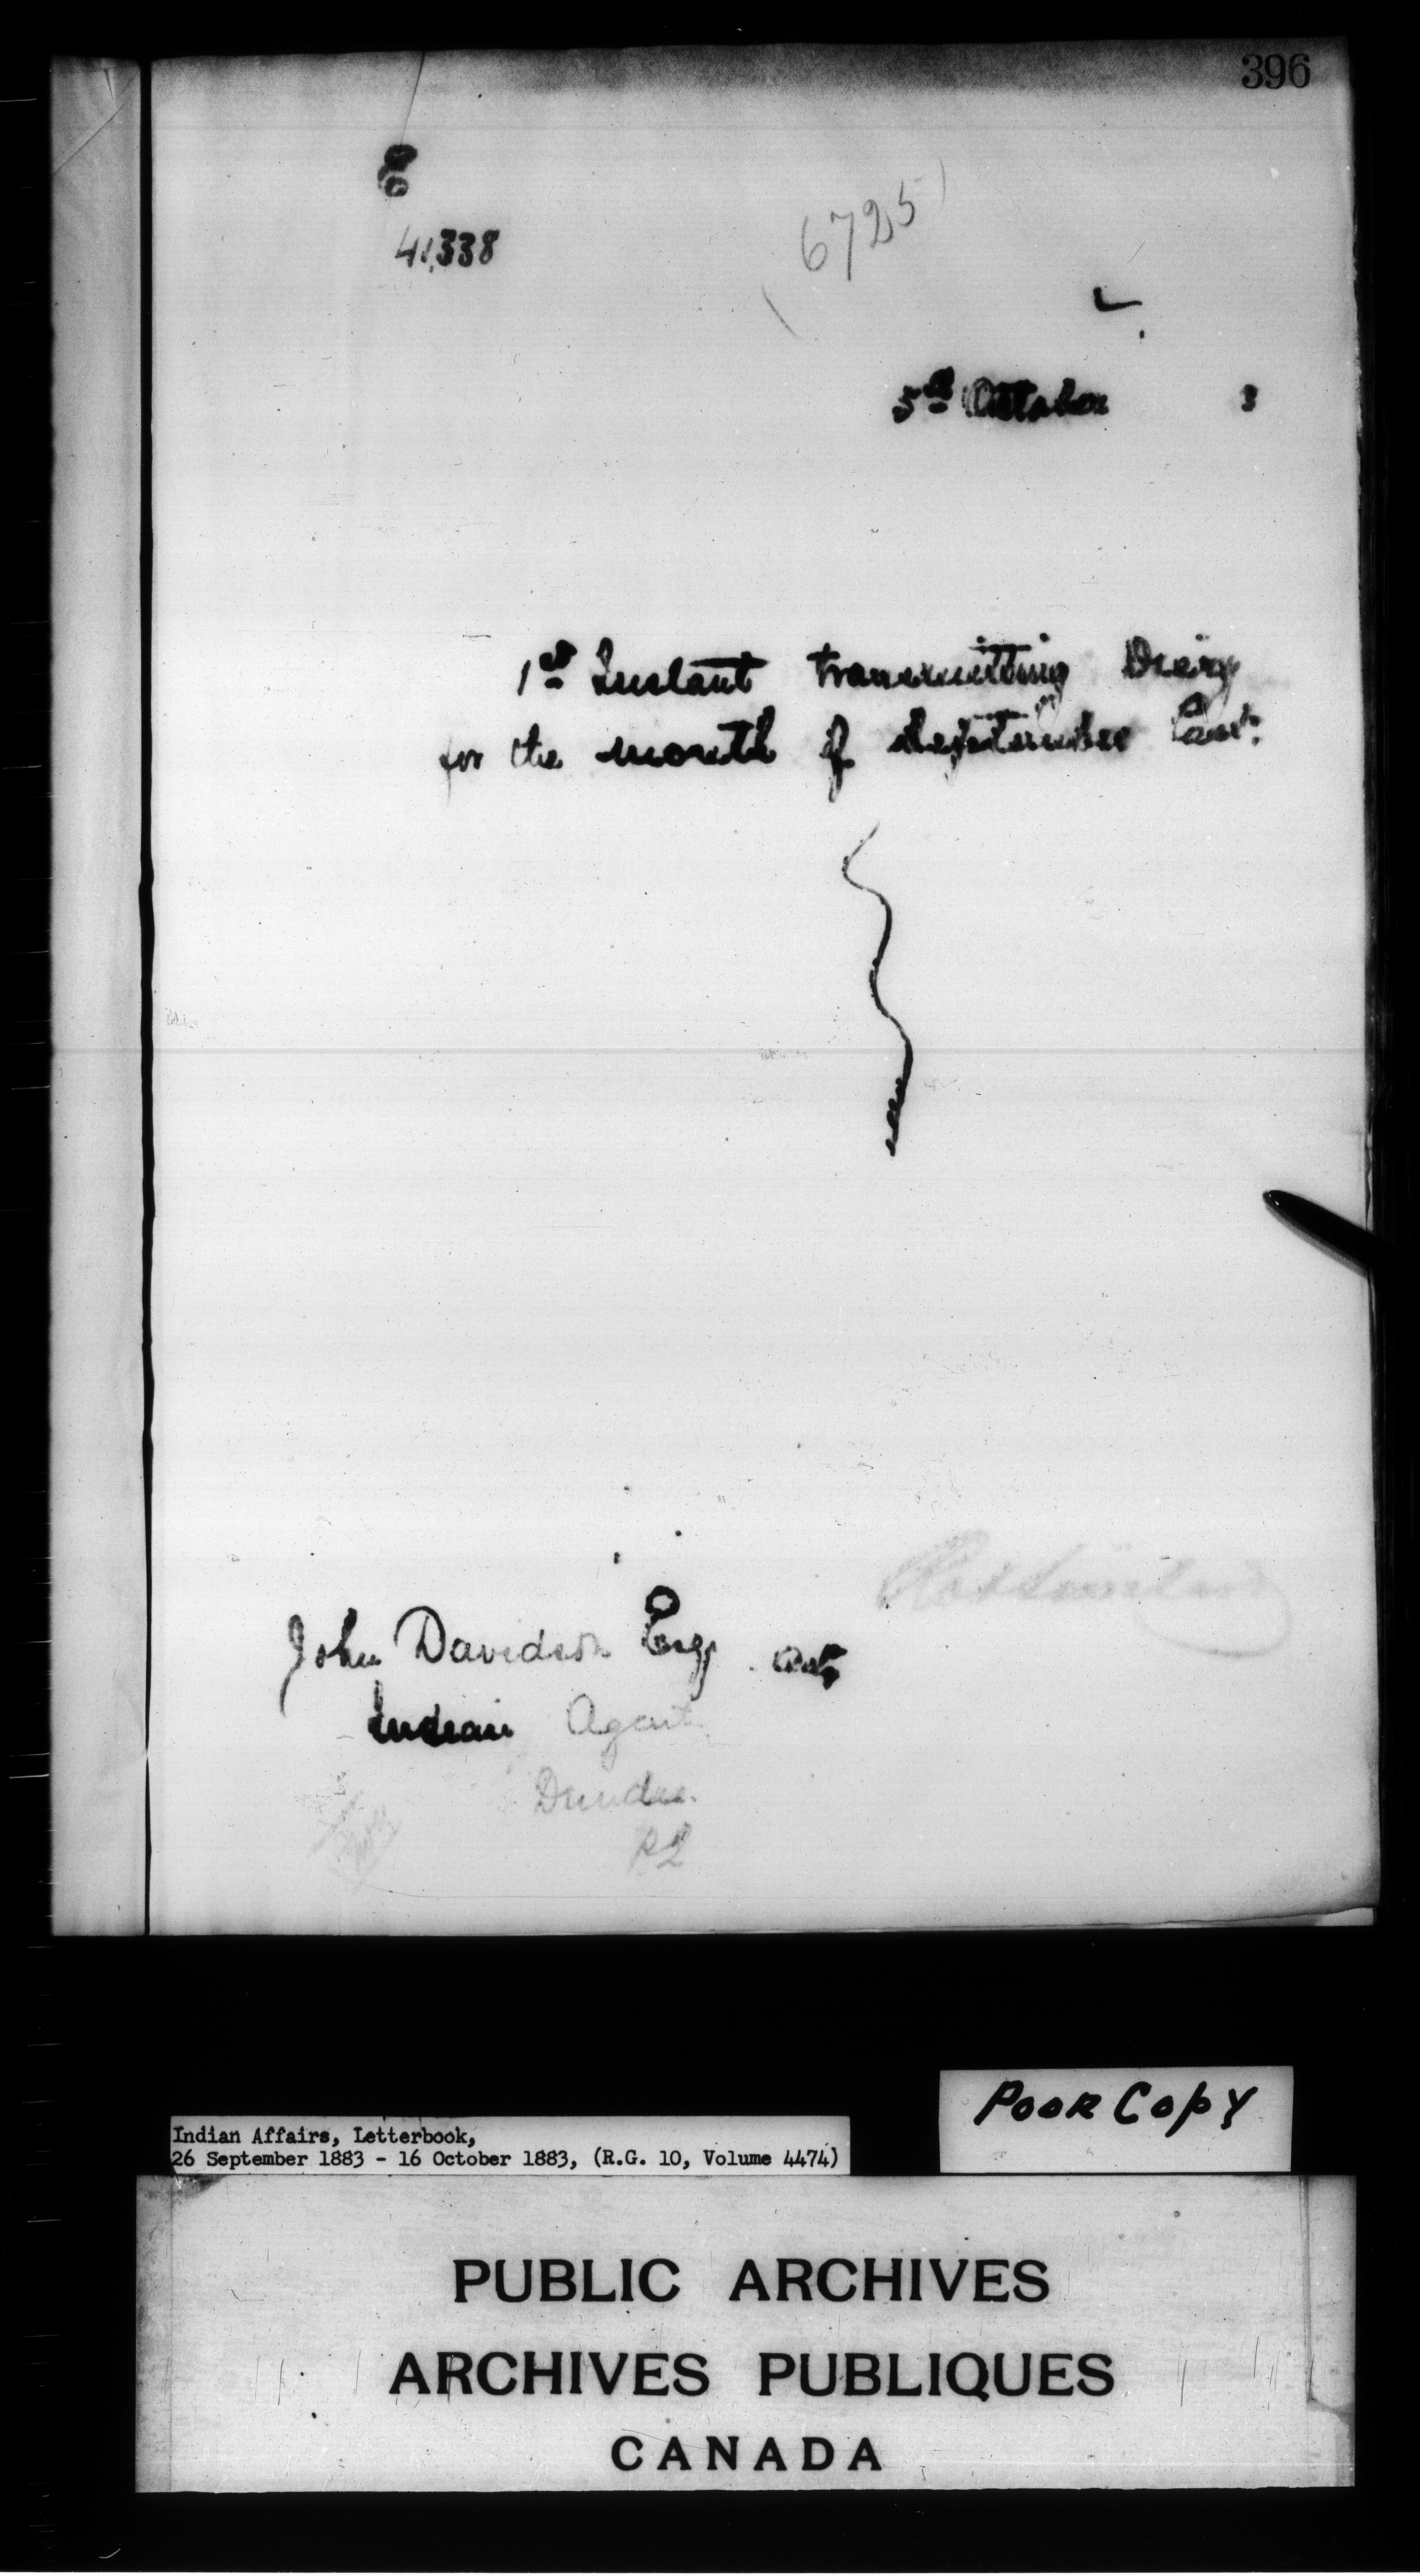 396
41,338
(6725)
5th October 3
1st Instant transmitting Diary
for the month of September last.
John Davidson Esq
Indian Agent
Dundee.
P2
Poor Copy
Indian Affairs, Letterbook,
26 September 1883 - 16 October 1883, (R.G. 10, Volume 4474)
PUBLIC ARCHIVES
ARCHIVES PUBLIQUES
CANADA